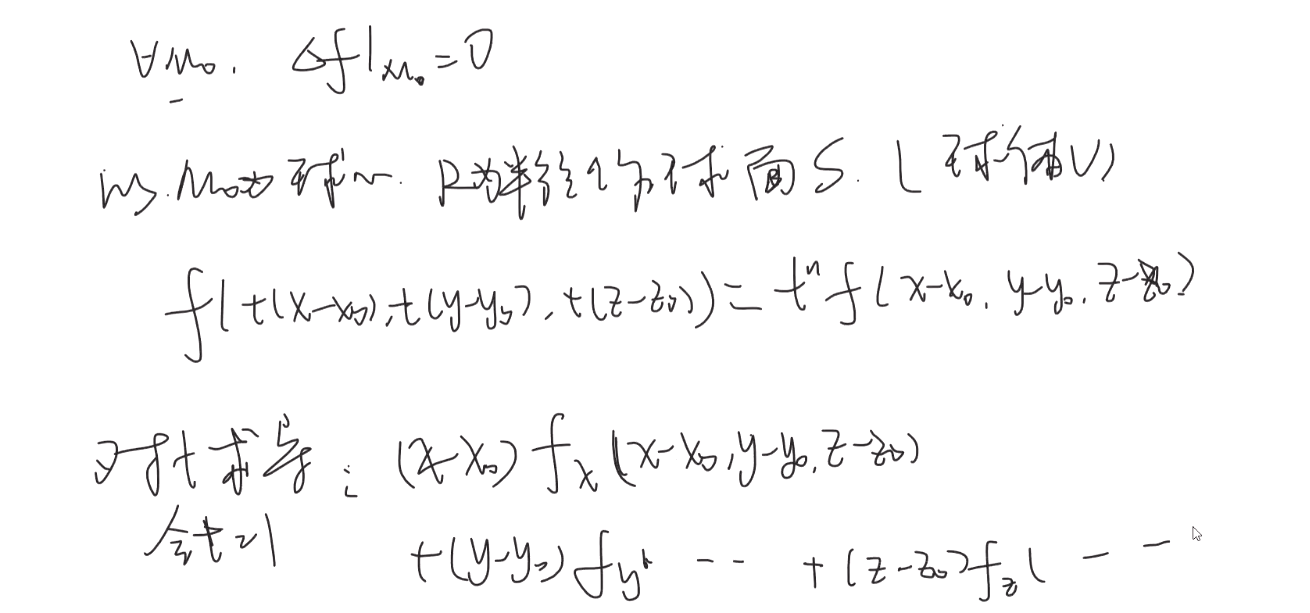 ∀M₀. Δf|ₘ₀=0
以M₀为球心. R为半径的球面S. (球体V)
f(t(x-x₀),t(y-y₀),t(z-z₀))=tⁿf(x-x₀,y-y₀,z-z₀)
对t求导: (x-x₀)fₓ(x-x₀,y-y₀,z-z₀)
令t=1 +(y-y₀)f_y -- +(z-z₀)f_z( --